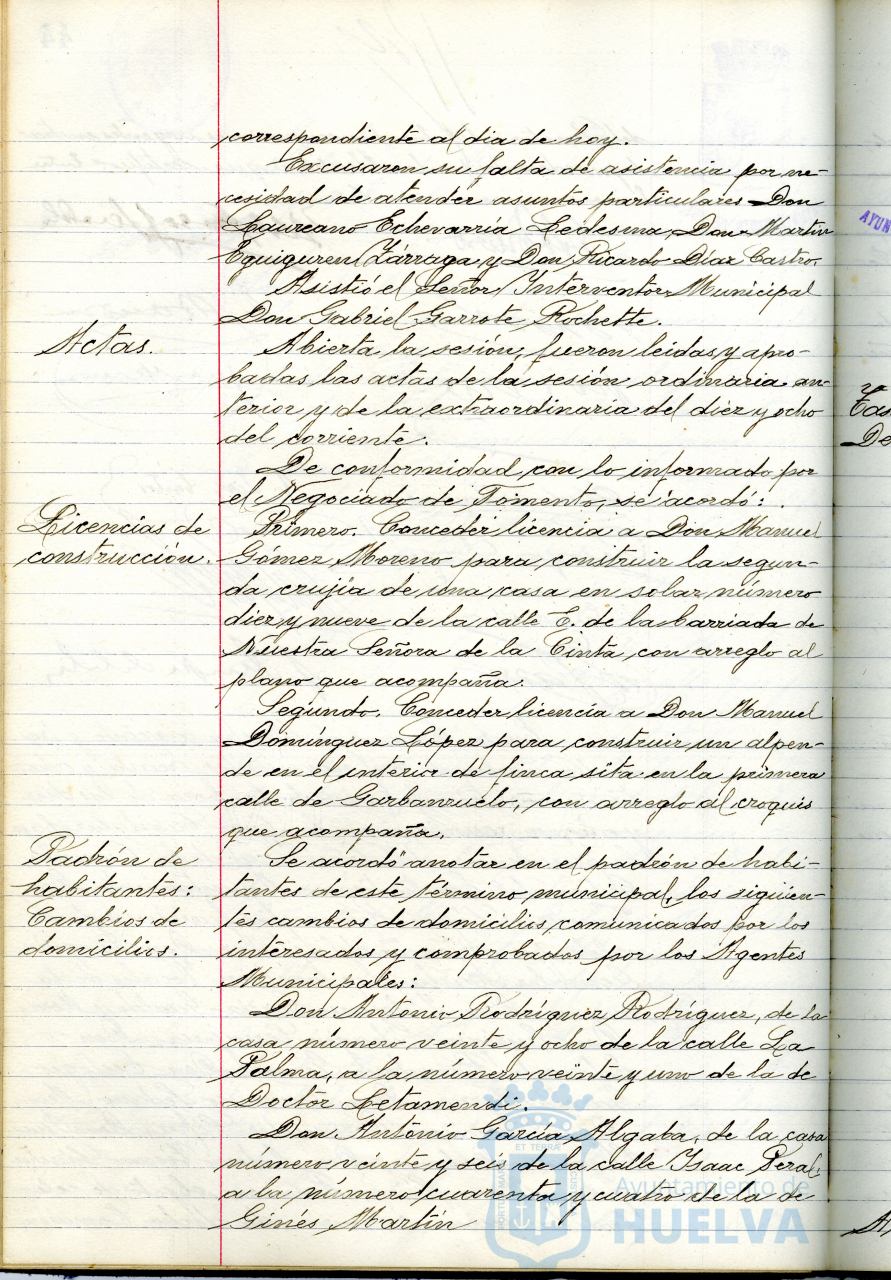 correspondiente al dia de hoy.
Excusaron su falta de asistencia por ne-
cesidad de atender asuntos particulares Don
Laureano Echevarría Ledesma, Don Martín
Eguiguren Zárraga y Don Ricardo Díaz Castro.
Asistió el Señor Interventor Municipal
Don Gabriel Garrote Rochette.
Actas.
Abierta la sesión, fueron leidas y apro-
badas las actas de la sesión ordinaria an-
terior y de la extraordinaria del diez y ocho
del corriente.
De conformidad con lo informado por
el Negociado de Fomento, se acordó:
Licencias de
construcción.
Primero. Conceder licencia a Don Manuel
Gómez Moreno para construir la segun-
da crujía de una casa en solar número
diez y nueve de la calle E. de la barriada de
Nuestra Señora de la Cinta, con arreglo al
plano que acompaña.
Segundo. Conceder licencia a Don Manuel
Domínguez López para construir un alpen-
de en el interior de finca sita en la primera
calle de Garbanzuelo, con arreglo al croquis
que acompaña.
Padrón de
habitantes:
Cambios de
domicilios.
Se acordó anotar en el padrón de habi-
tantes de este término municipal, los siguien-
tes cambios de domicilios comunicados por los
interesados y comprobados por los Agentes
Municipales:
Don Antonio Rodríguez Rodríguez, de la
casa número veinte y ocho de la calle La
Palma, a la número veinte y uno de la de
Doctor Letamendi.
Don Antonio García Algaba, de la casa
número veinte y seis de la calle Isaac Peral,
a la número cuarenta y cuatro de la de
Ginés Martín
Ayuntamiento de
HUELVA